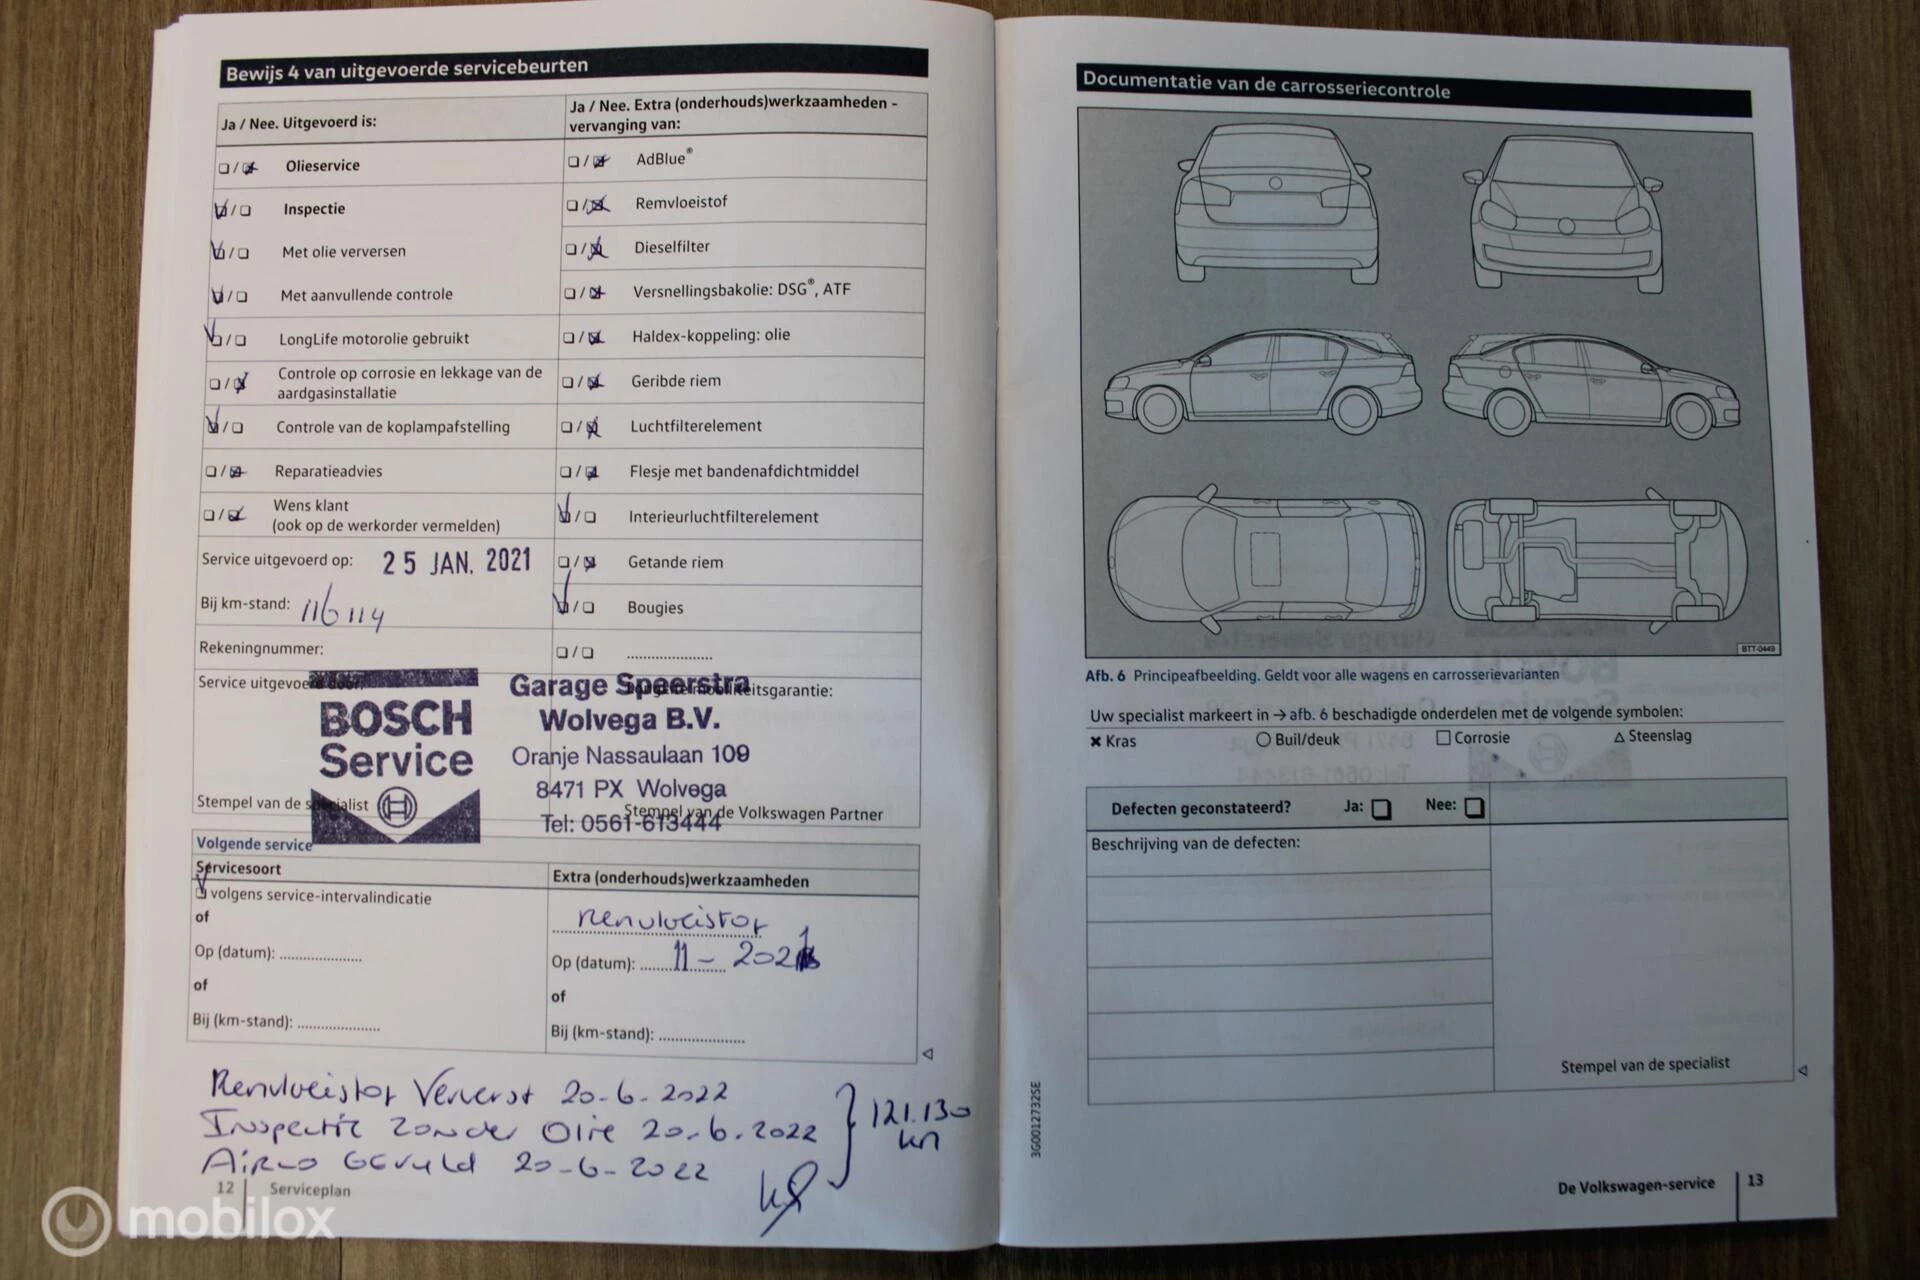 Bewijs 4 van uitgevoerde servicebeurten
Ja / Nee. Uitgevoerd is:
Olieservice
Inspectie
Met olie verversen
Met aanvullende controle
LongLife motorolie gebruikt
Controle op corrosie en lekkage van de
aardgasinstallatie
Controle van de koplampafstelling
Reparatieadvies
Wens klant
(ook op de werkorder vermelden)
Service uitgevoerd op: 25 JAN. 2021
Bij km-stand: 116114
Rekeningnummer:
Ja / Nee. Extra (onderhouds)werkzaamheden -
vervanging van:
AdBlue®
Remvloeistof
Dieselfilter
Versnellingsbakolie: DSG®, ATF
Haldex-koppeling: olie
Geribde riem
Luchtfilterelement
Flesje met bandenafdichtmiddel
Interieurluchtfilterelement
Getande riem
Bougies
Service uitgevoerd door:
BOSCH
Service
Stempel van de specialist
Garage Speerstra
Wolvega B.V.
Oranje Nassaulaan 109
8471 PX Wolvega
Tel: 0561-613444
Stempel van de Volkswagen Partner
Volgende service
Servicesoort
volgens service-intervalindicatie
of
Op (datum):
of
Bij (km-stand):
Extra (onderhouds)werkzaamheden
Remvloeistof
Op (datum): 11 - 2021
of
Bij (km-stand):
Remvloeistof Ververst 20-6-2022
Inspectie Zonder Olie 20-6-2022
Airco Gevuld 20-6-2022
121.130
km
12 Serviceplan
mobilox
Documentatie van de carrosseriecontrole
BTT-0449
Afb. 6 Principeafbeelding. Geldt voor alle wagens en carrosserievarianten
Uw specialist markeert in → afb. 6 beschadigde onderdelen met de volgende symbolen:
Kras Buil/deuk Corrosie Steenslag
Defecten geconstateerd? Ja: Nee:
Beschrijving van de defecten:
Stempel van de specialist
3G0012732SE
De Volkswagen-service 13